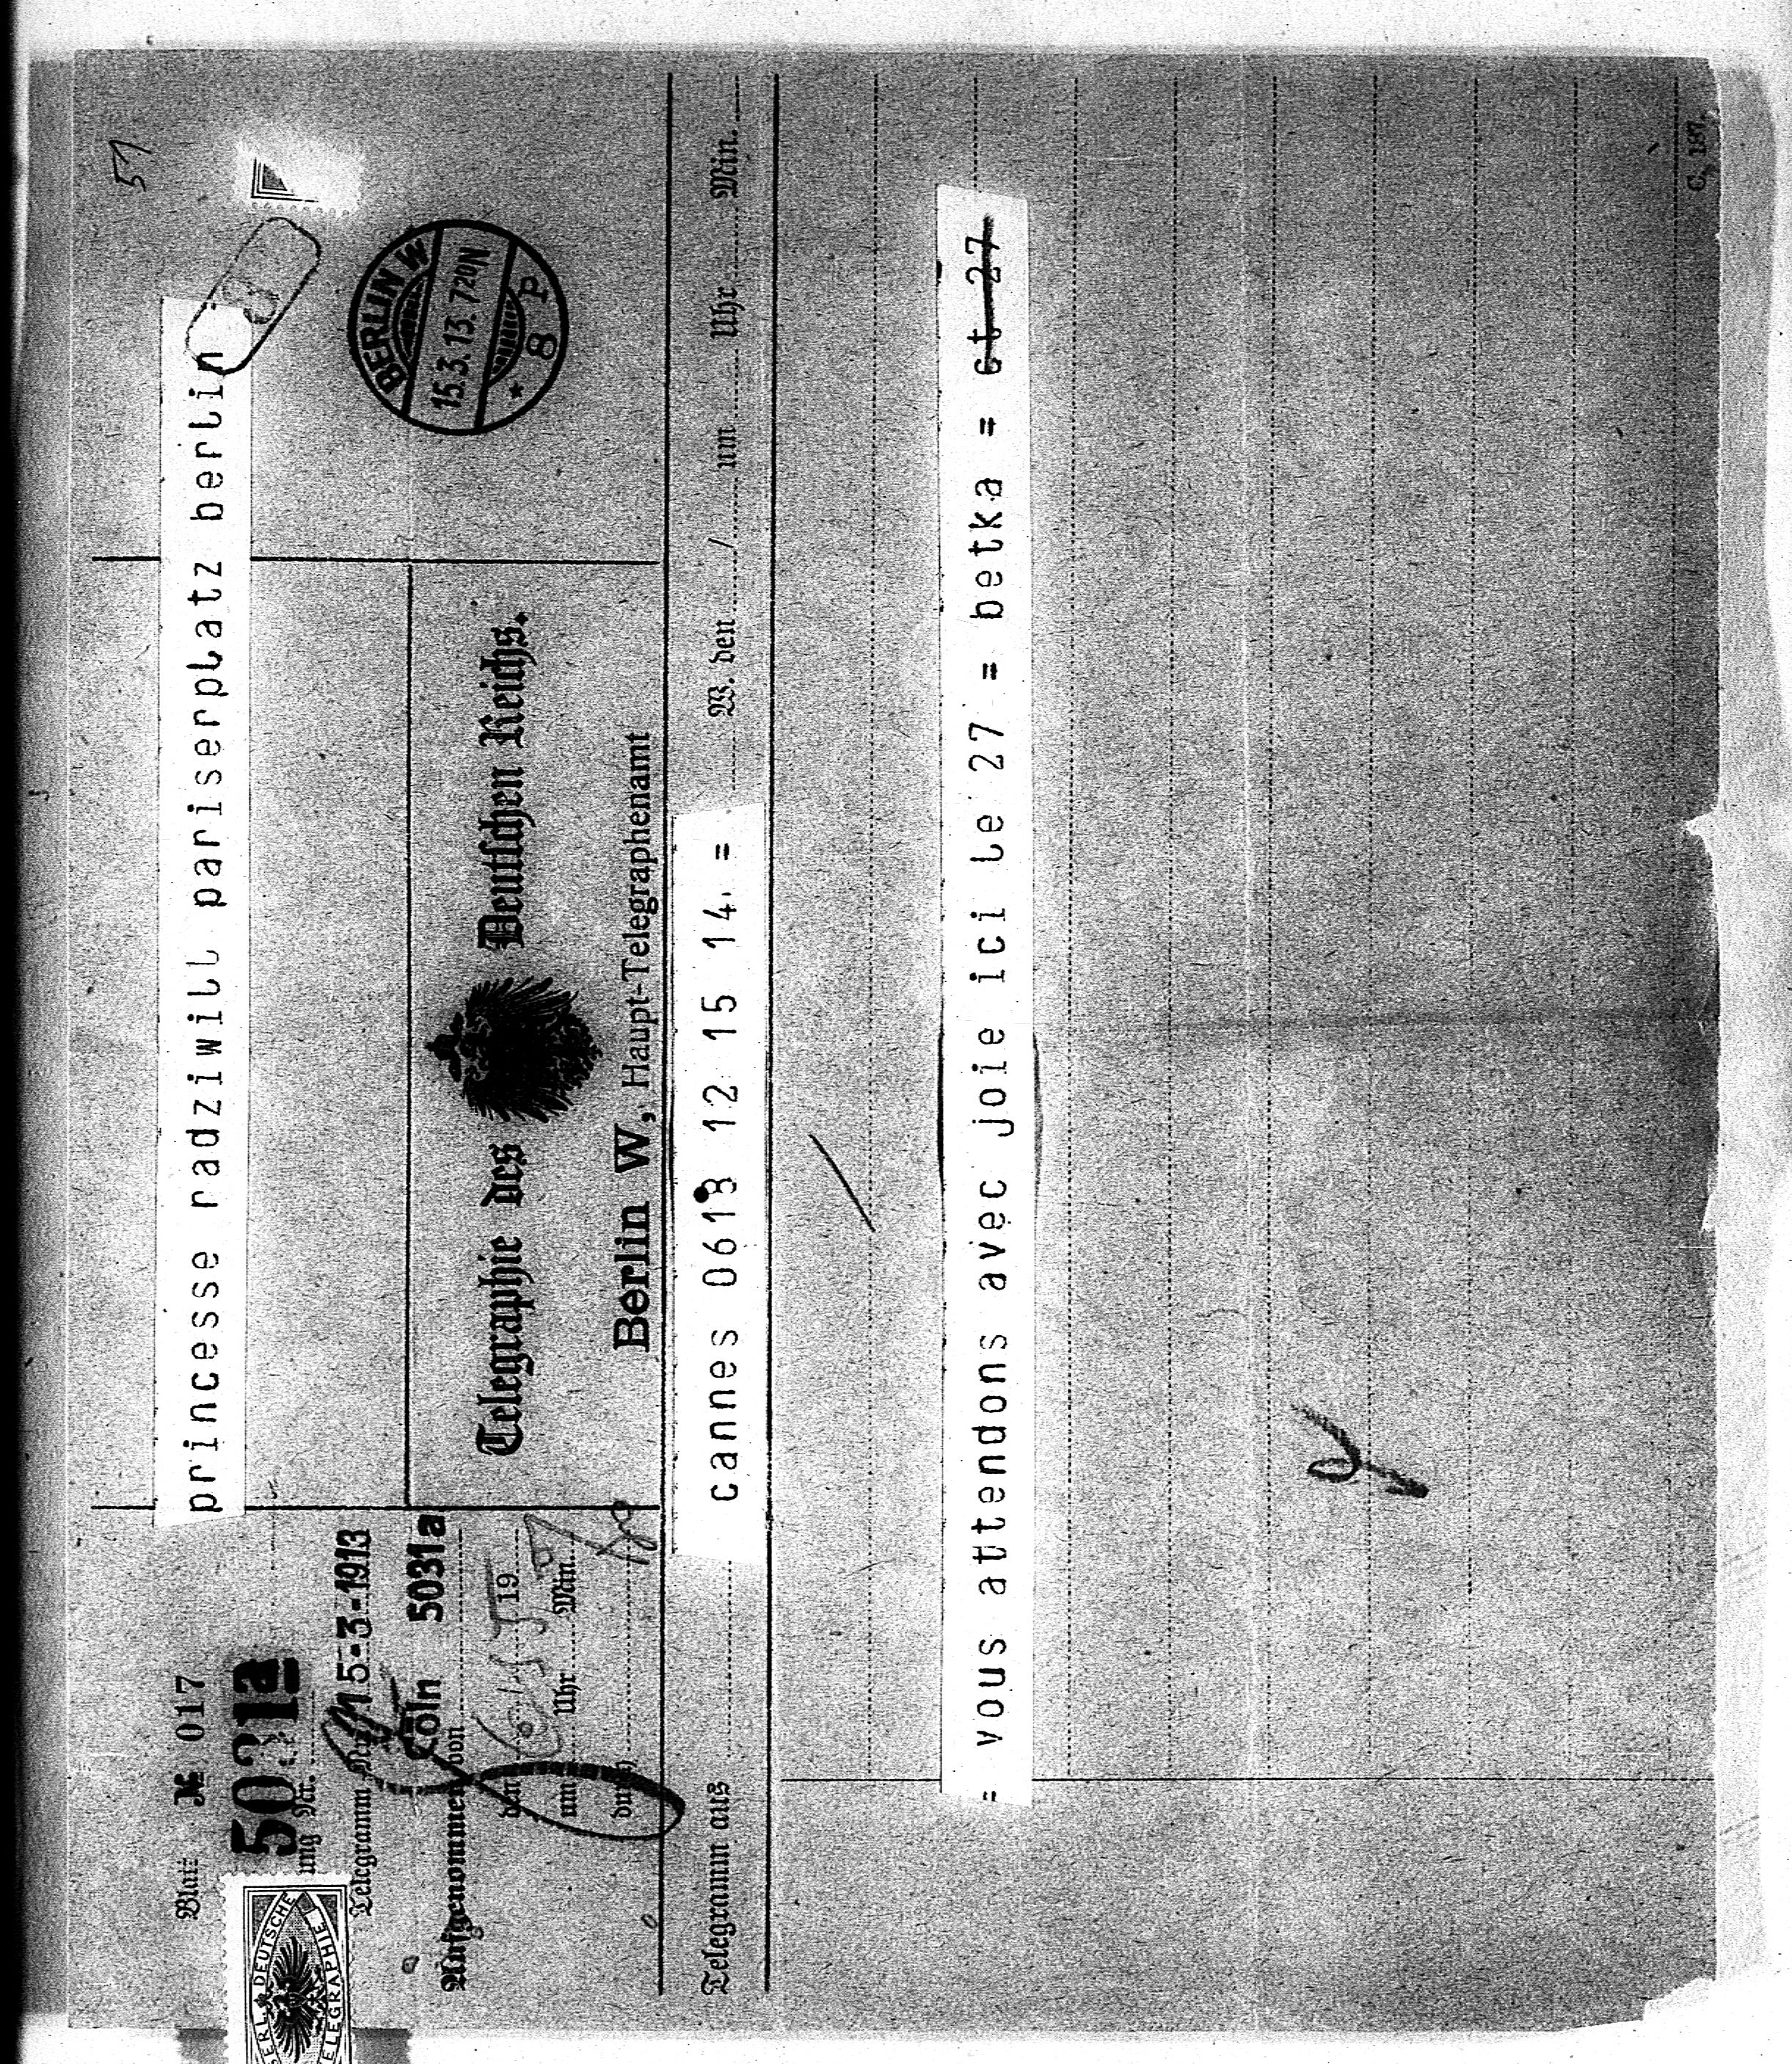 57
princesse radziwill pariserplatz berlin =
Blatt № 017
5031a
ung Nr.
Telegramm Nr.
15-3-1913
Cöln 5031a
Aufgenommen von
den 19
um Uhr Min.
durch
BERLIN W
15.3.13.720N
* 8 P
Telegraphie des Deutschen Reichs.
Berlin W, Haupt-Telegraphenamt
DEUTSCHE
TELEGRAPHIE
Telegramm aus cannes 0618 12 15 14. = W. den / um Uhr Min.
= vous attendons avec joie ici le 27 = betka = ct 27
C. 187.